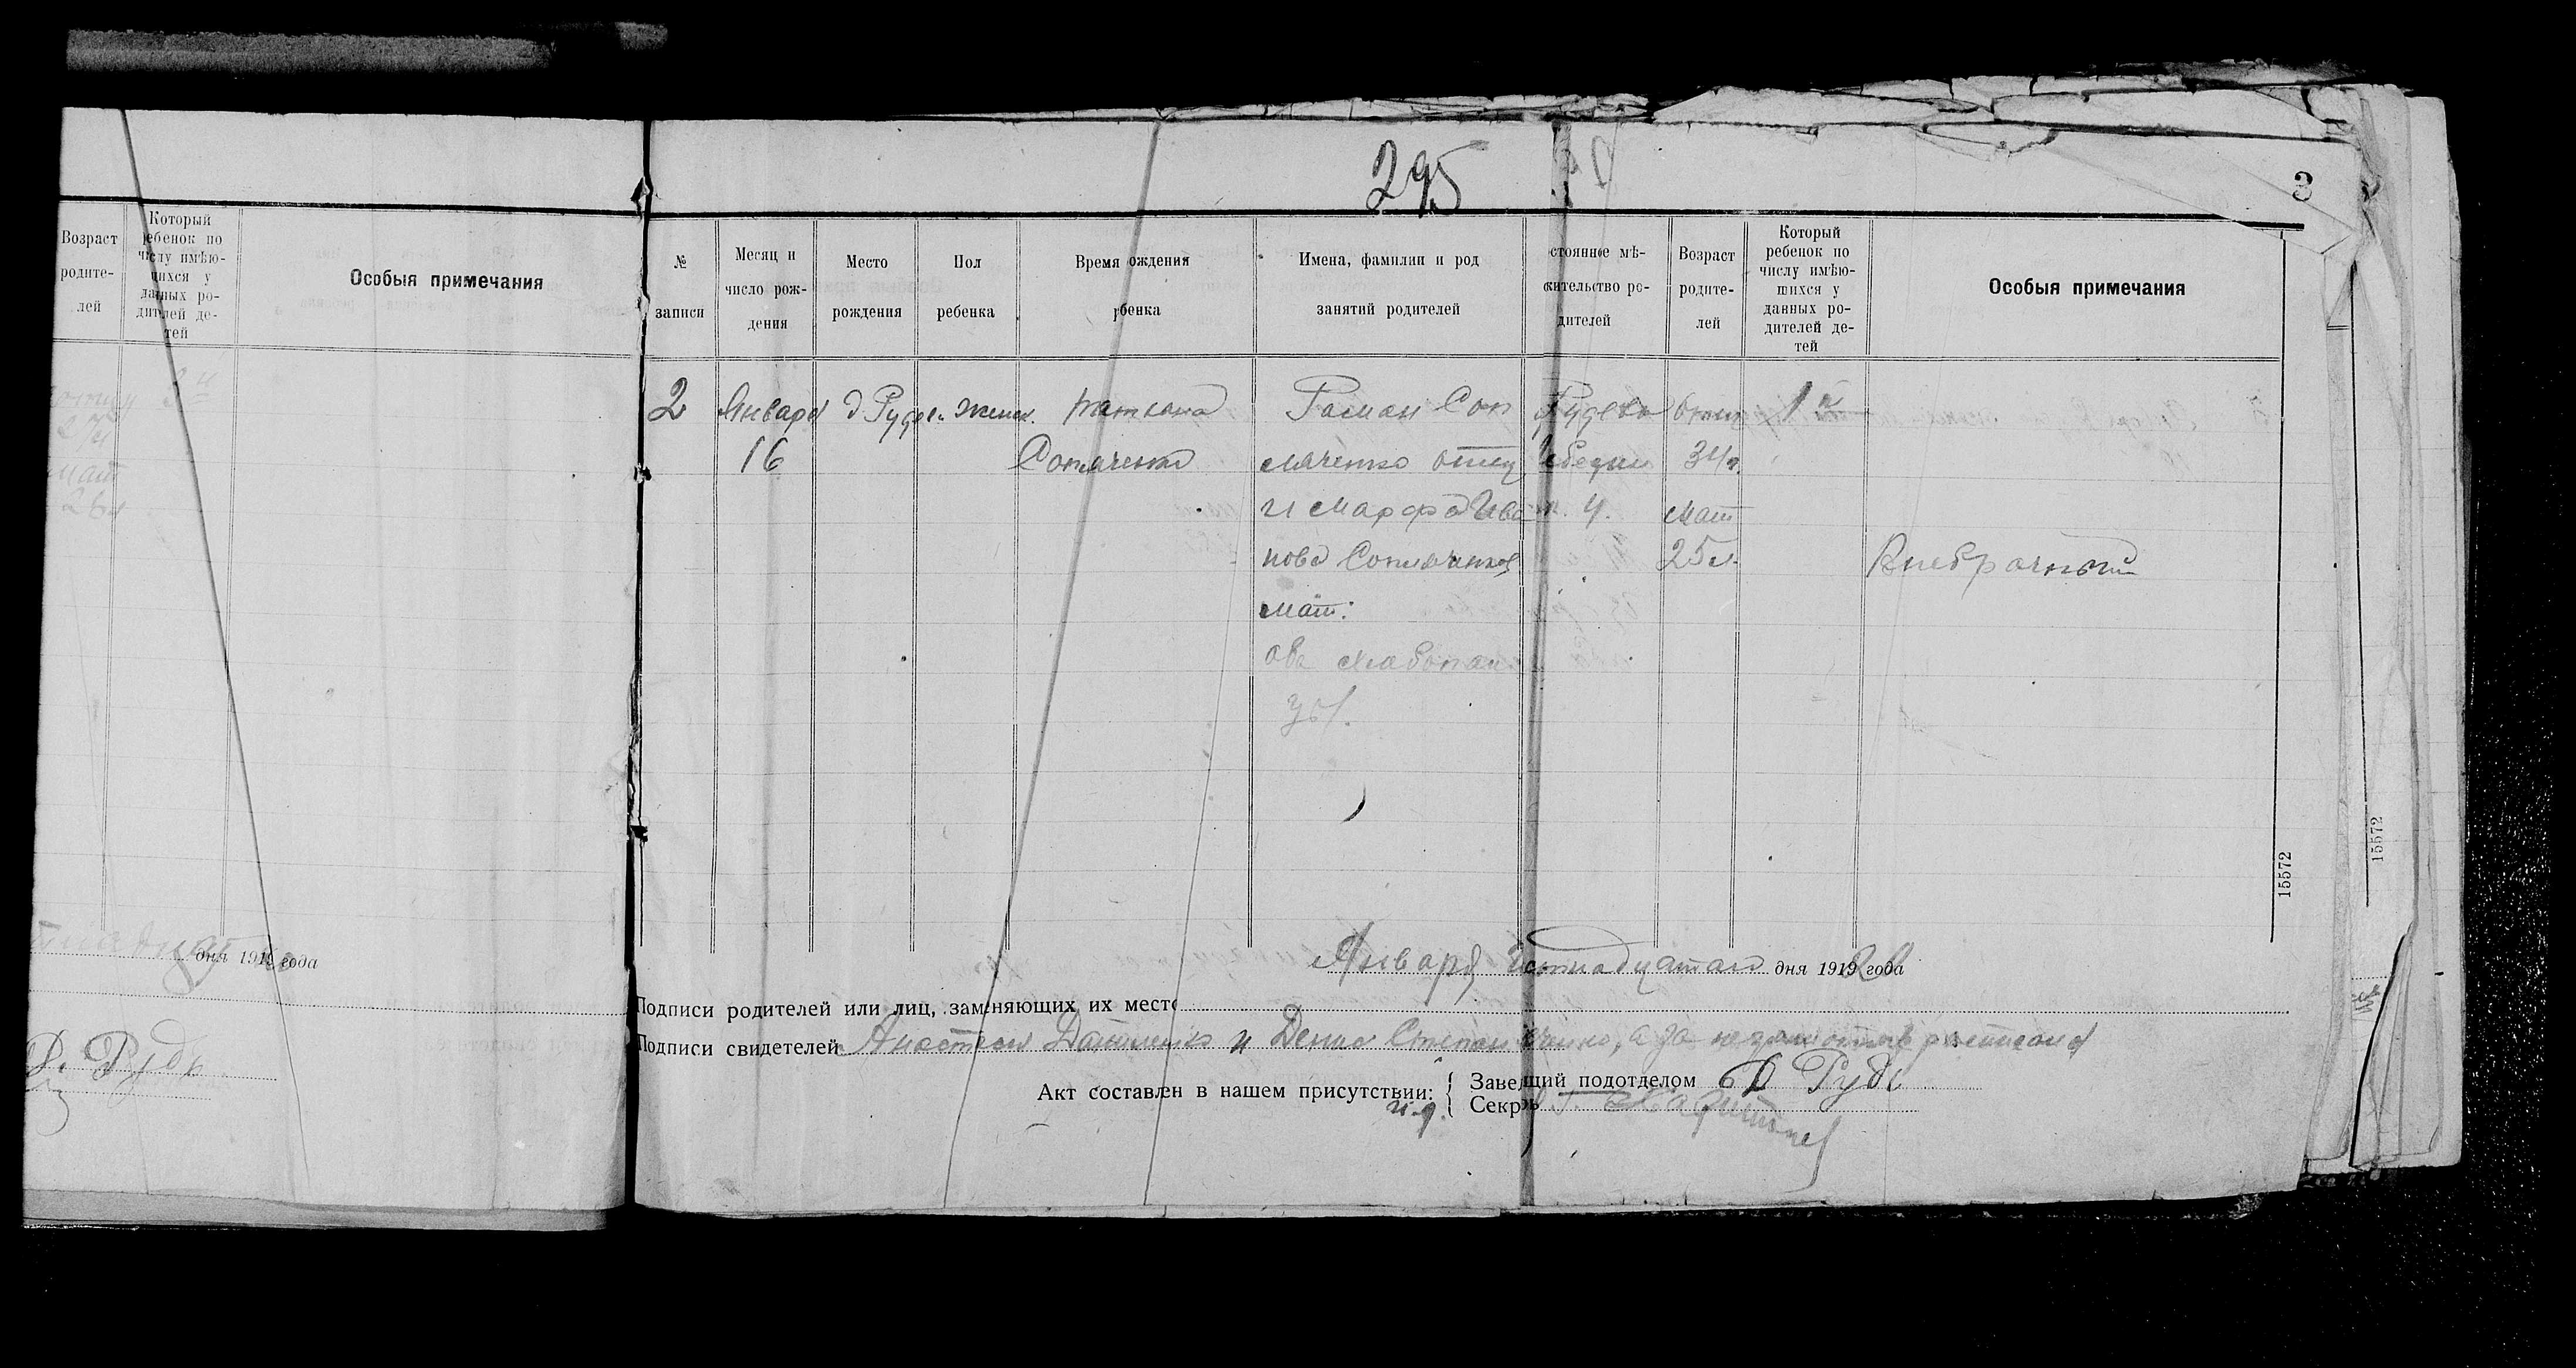 295
3
Возраст родите- лей
Который ребенок по числу имѣю- щихся у данных ро- дителей де- тей
Особыя примечания
дня 1919 года
Д. Рудь
№ записи
Месяц и число рож- дения
Место рождения
Пол ребенка
Время рождения ребенка
Имена, фамилии и род занятий родителей
стоянное мѣ- жительство ро- дителей
Возраст родите- лей
Который ребенок по числу имѣю- шихся у данных ро- дителей де- тей
Особыя примечания
2
Января
16
д Рудев.
женск.
Татьяна
Роман Соп
ляченко отец
и Марфа Ива
нова
мат:
оба хлебопаш
цы.
Рудевка
Лебедин
у.
отец
34г.
мат
25л.
1й
Внебрачный
15572
15572
Января дня 1919 года
Подписи родителей или лиц, заменяющих их место
Подписи свидетелей Анастасия Даниленко и
Акт составлен в нашем присутствии:
Заведщий подотделом Д Рудь
и.д. Секр